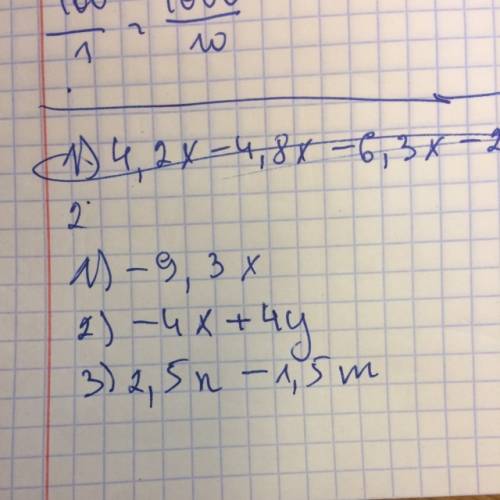 100/1 = 1000/10
1) 4,2x - 4,8x - 6,3x - 2
2
1) - 9,3x
2) - 4x + 4y
3) 2,5n - 1,5m